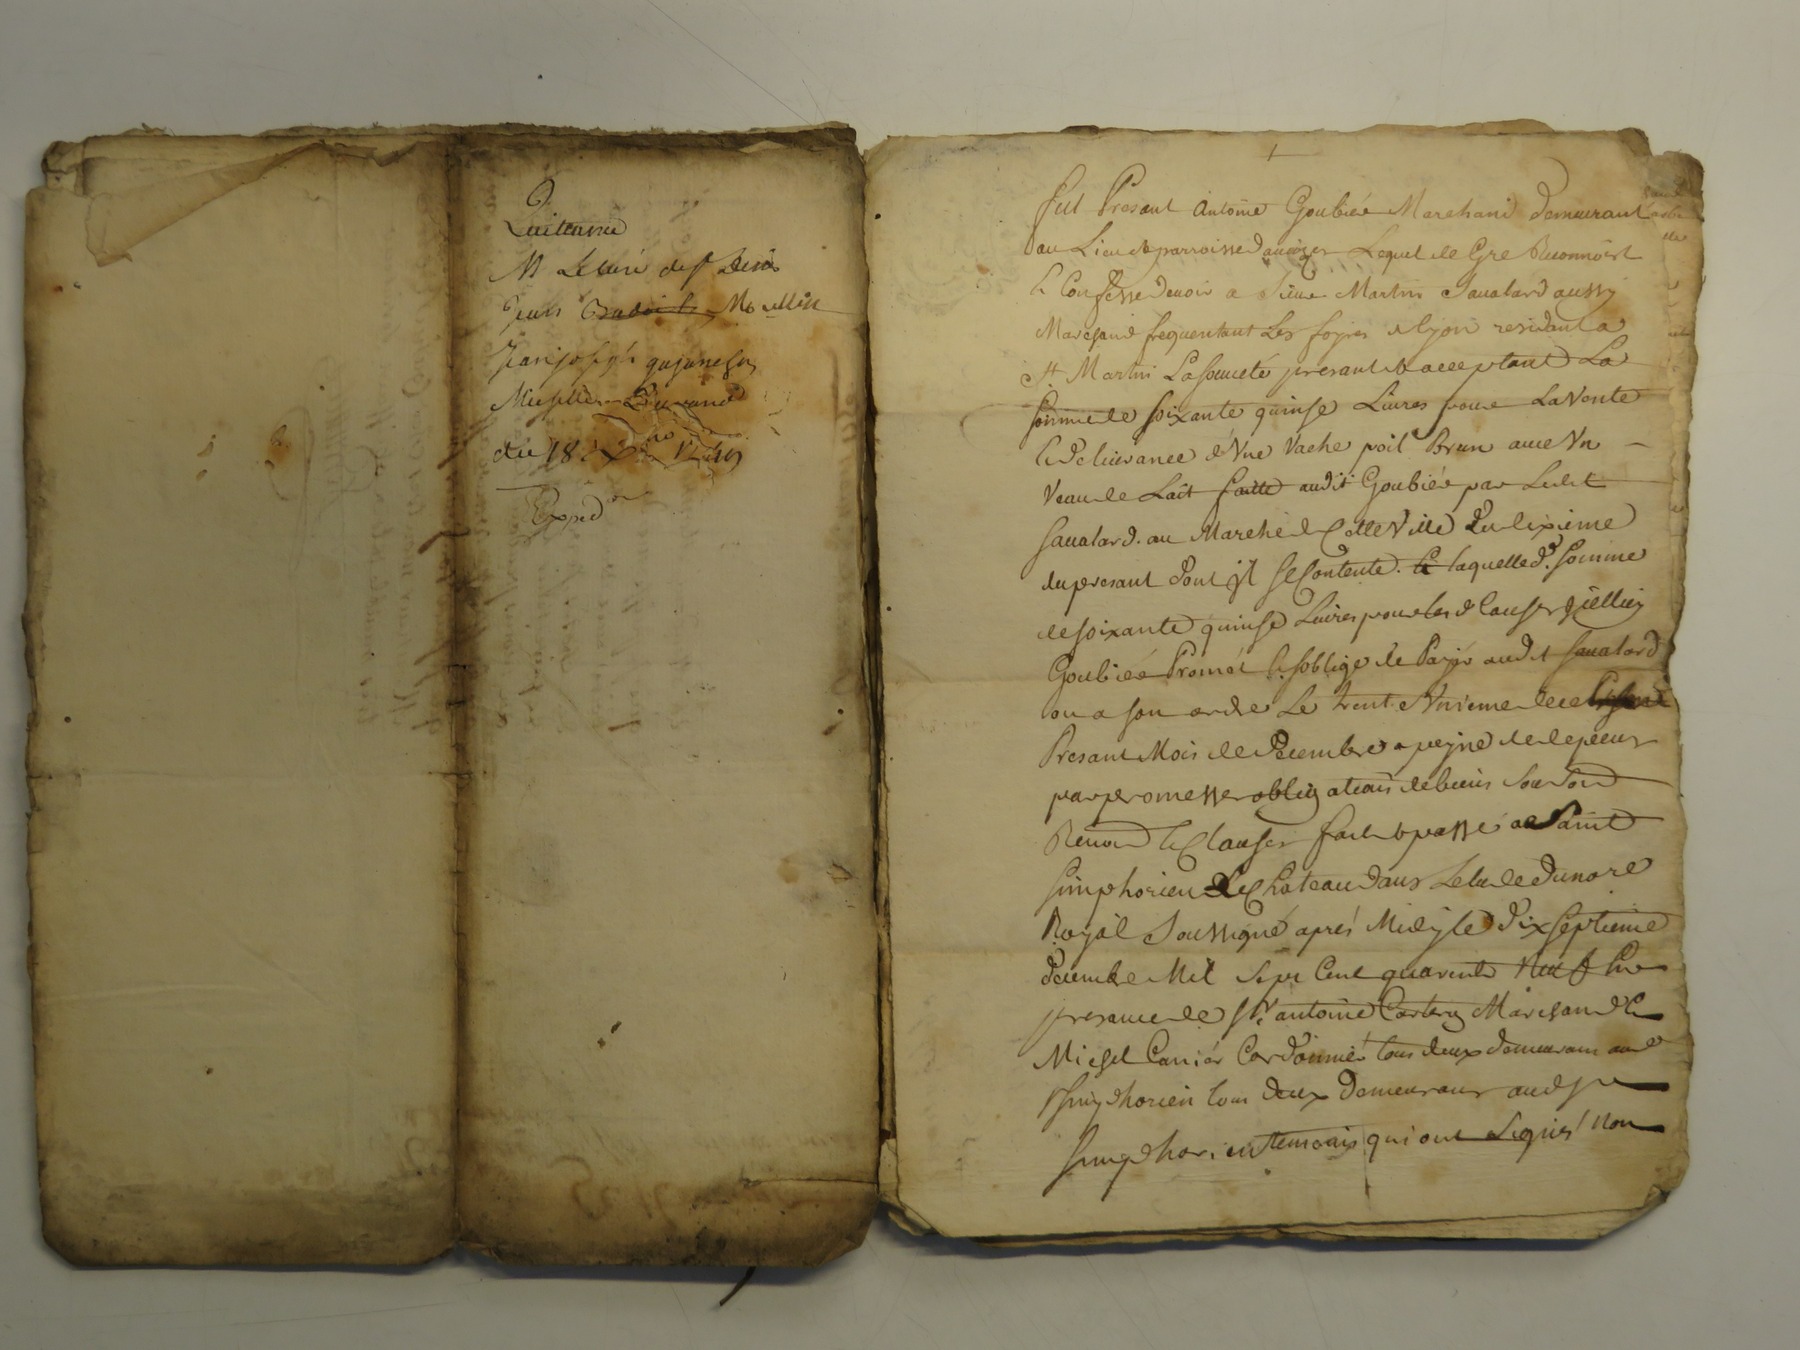 Quittance
Mr Le curé de St Denis
Jean Moullin
Jean joseph
Durand
du 18e Xbre 1749
Expedon
Fut Presant Antoine Goubiée Marchand demeurant
au Lieu et parroisse d'aveizes Lequel de Gré Reconnoist
& Confesse devoir a Sieur Martin Savatard aussy
Marchand frequentant Les foyres de lyon residant a
St Martin La presant & acceptant La
somme de soixante quinse Livres pour La Vente
& Delivrance d'Vne Vache poil Brun avec Vn
Veau de Lait faitte audit Goubiée par Ledit
Savatard au Marché de Cette Ville Du dixieme
du presant dont jl se Contente. laquelle de. somme
de soixante quinse Livres pour les de Causes jcelluy
Goubiée Promet & soblige de Payer audit Savatard
ou a son ordre Le trent Vnieme de ce
Presant Mois de Decembre a peyne de depens
par promesse obligations de biens
Renon & Clauses fait & passé a Saint
Simphorien Le Chateau dans Letude du nore
Royal Soussigné aprés Midy le dix septieme
decembre Mil Sept Cent quarente Neuf En
presance de Sr antoine Marchand &
Michel Cordonnier tous deux demeurans aud
Simphorien tous deux demeurans aud St
Simphorien temoins qui ont signés Non